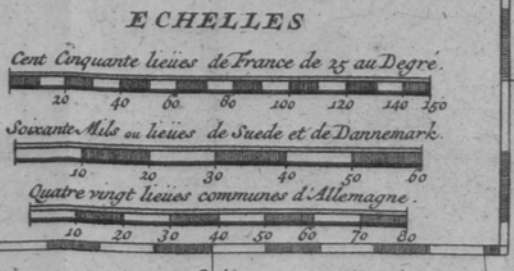 ECHELLES
Cent Cinquante lieües de France de 25 au Degré.
20 40 60 80 100 120 140 150
Soixante Mils ou lieües de Suede et de Dannemark.
10 20 30 40 50 60
Quatre vingt lieües communes d'Allemagne.
10 20 30 40 50 60 70 80